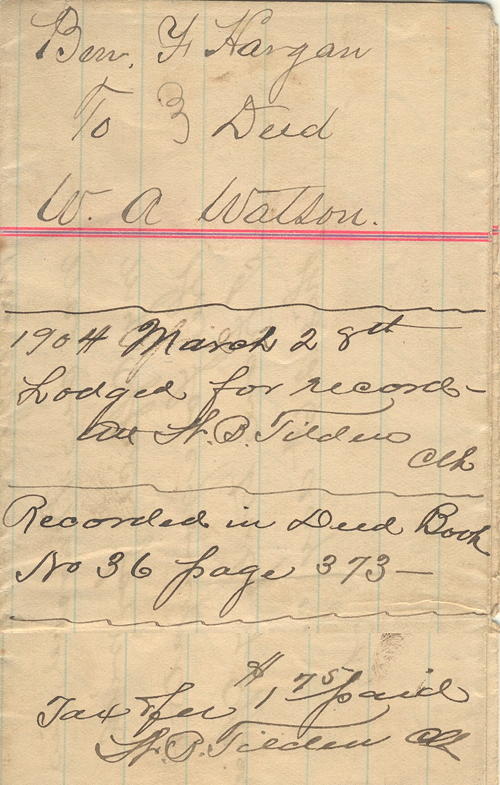 Ben. F Hargan
To } Deed
W. A Watson.
1904 March 28th
Lodged for record
Att H. B. Tilden
Clk
Recorded in Deed Book
No 36 page 373—
Tax & fee $1,75 paid
H. B. Tilden Clk